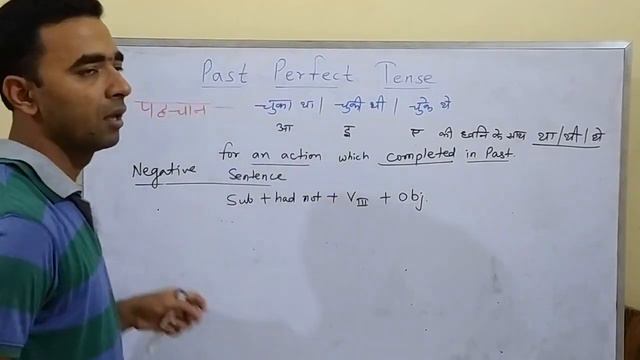 Past Perfect Tense
पहचान — चुका था| चुकी थी| चुके थे
आ इ ए की ध्वनि के साथ था/थी/थे
for an action which completed in Past.
Negative Sentence
Sub + had not + VIII + Obj.